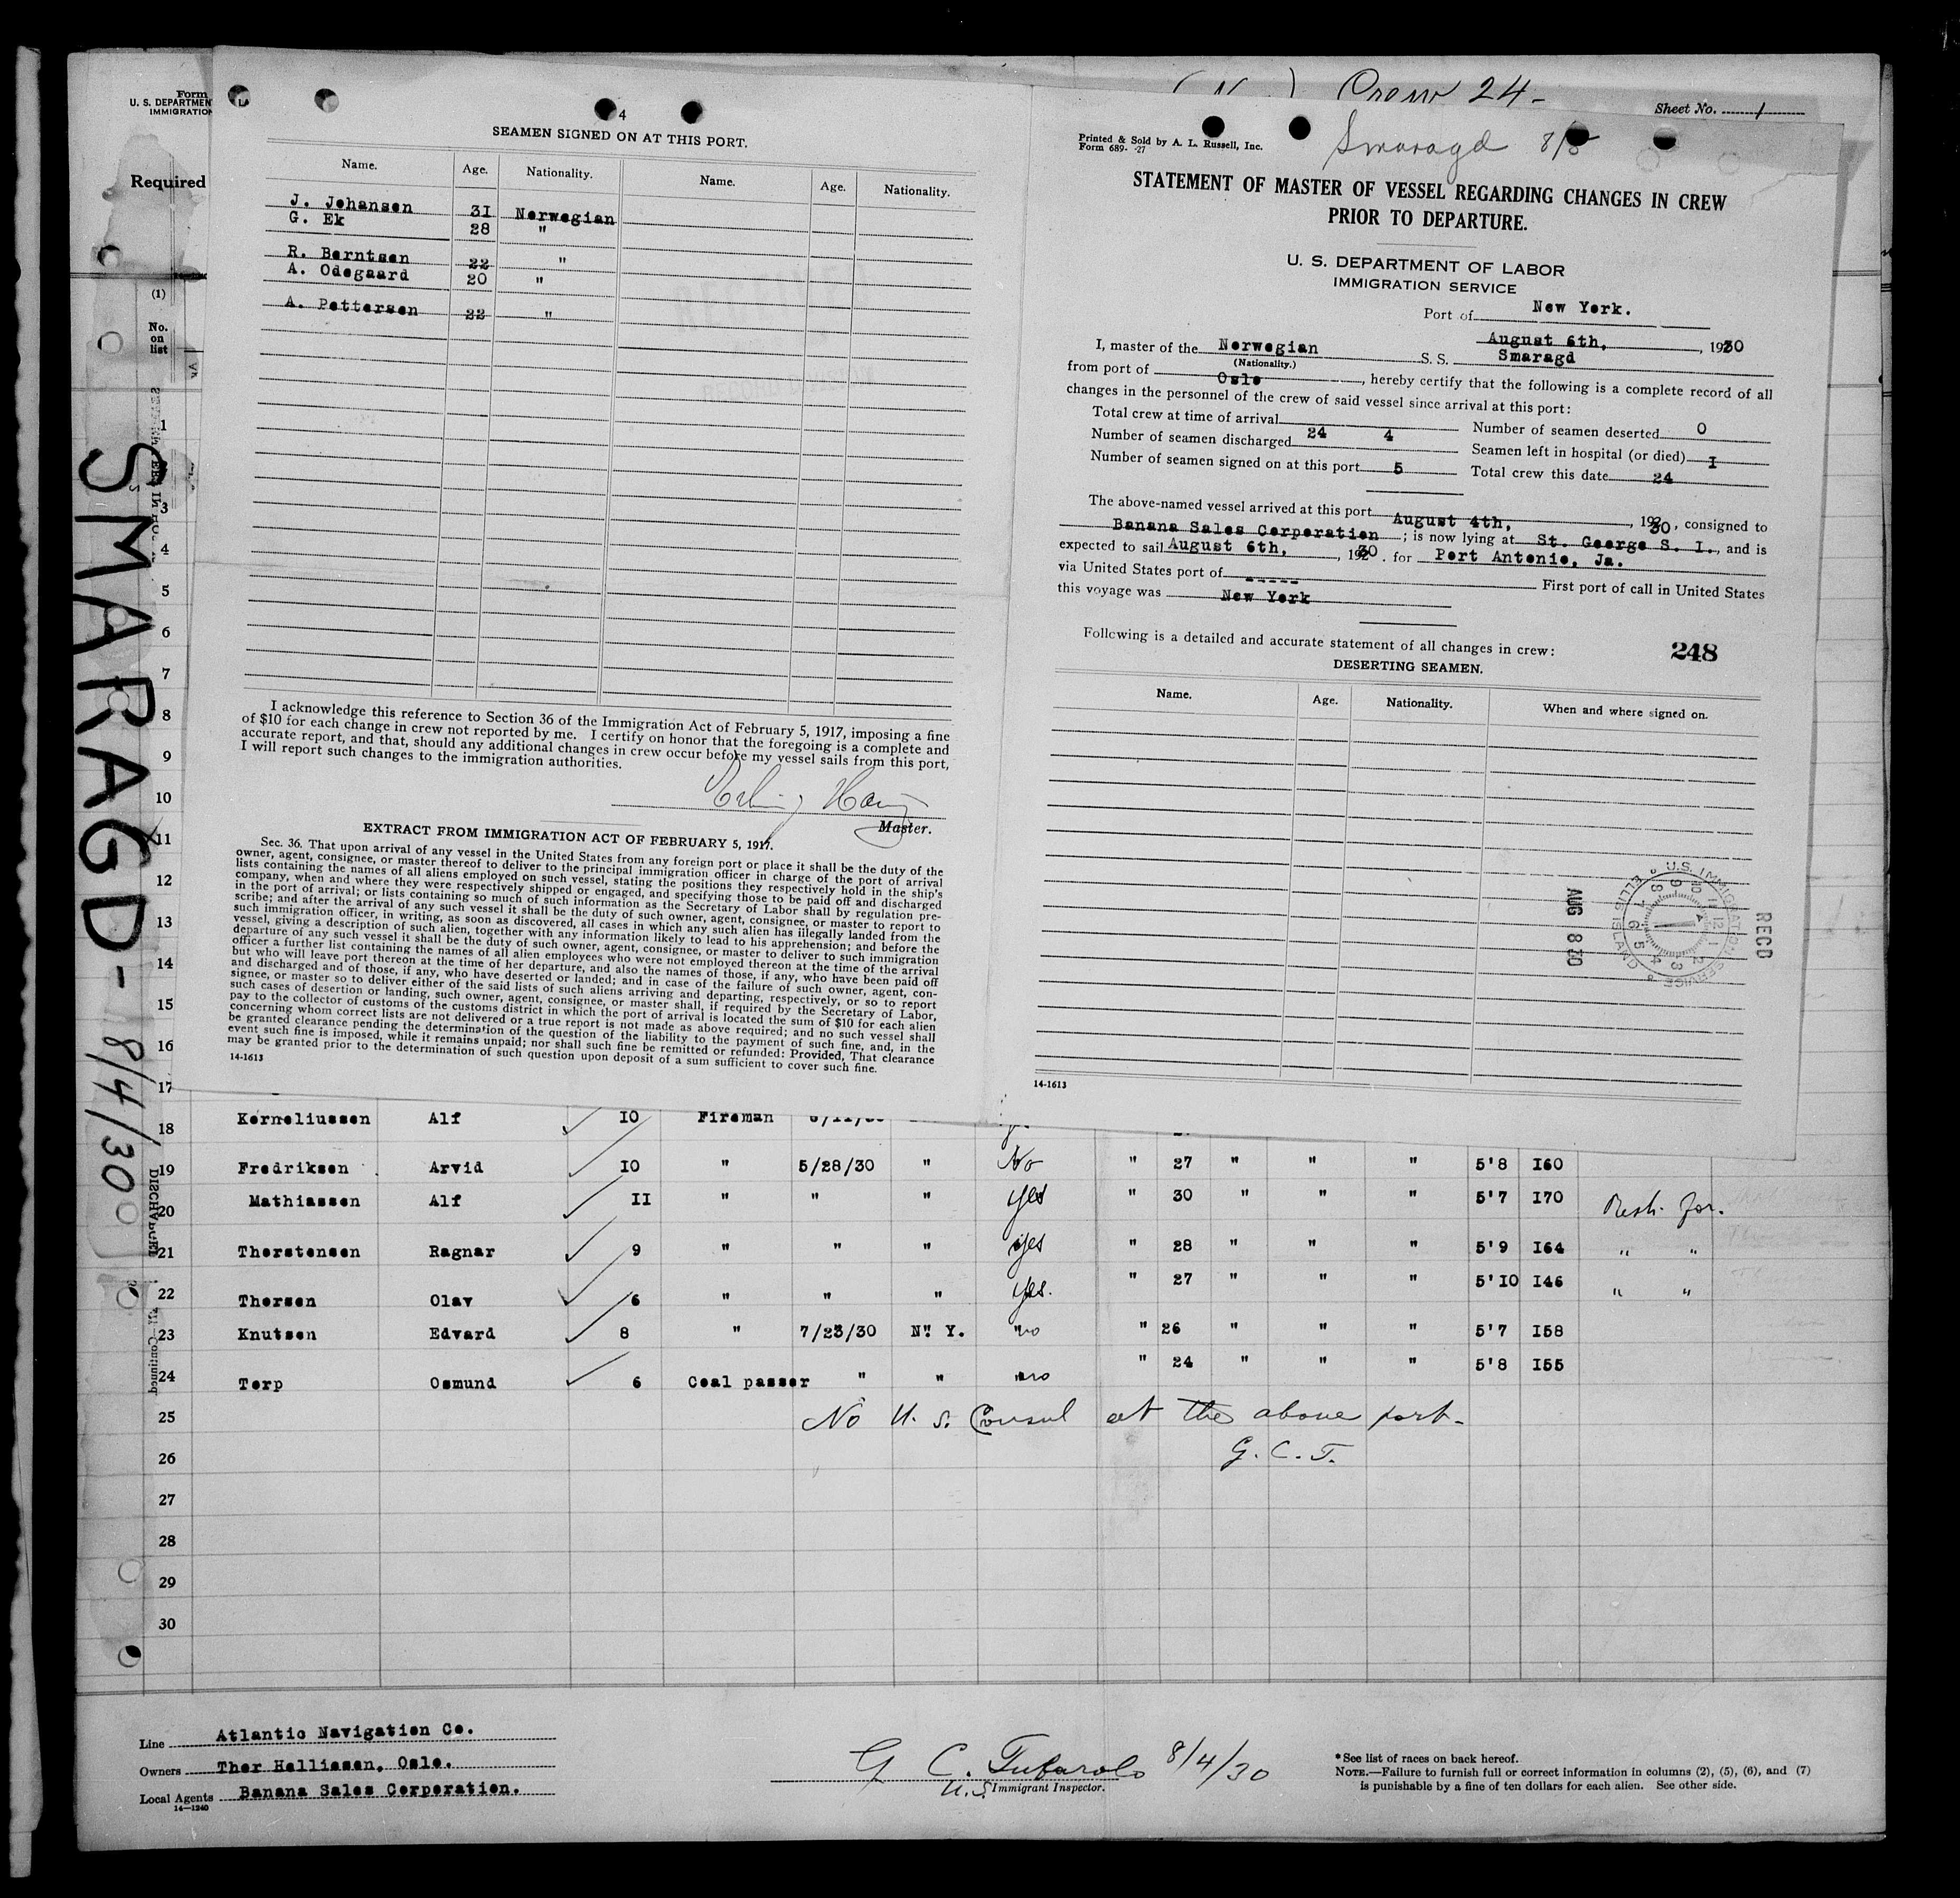 Form
U. S. DEPARTMENT
IMMIGRATION
Required
(1)
No.
on
list
SMARAGD - 8/4/30
Crew 24-
Sheet No. 1
4
SEAMEN SIGNED ON AT THIS PORT.
Name. Age. Nationality. Name. Age. Nationality.
J. Johansen 31 Norwegian
G. Ek 28 "
R. Berntsen 22 "
A. Odegaard 20 "
A. Pettersen 22 "
I acknowledge this reference to Section 36 of the Immigration Act of February 5, 1917, imposing a fine
of $10 for each change in crew not reported by me. I certify on honor that the foregoing is a complete and
accurate report, and that, should any additional changes in crew occur before my vessel sails from this port,
I will report such changes to the immigration authorities.
Master.
EXTRACT FROM IMMIGRATION ACT OF FEBRUARY 5, 1917.
Sec. 36. That upon arrival of any vessel in the United States from any foreign port or place it shall be the duty of the
owner, agent, consignee, or master thereof to deliver to the principal immigration officer in charge of the port of arrival
lists containing the names of all aliens employed on such vessel, stating the positions they respectively hold in the ship's
company, when and where they were respectively shipped or engaged, and specifying those to be paid off and discharged
in the port of arrival; or lists containing so much of such information as the Secretary of Labor shall by regulation pre-
scribe; and after the arrival of any such vessel it shall be the duty of such owner, agent, consignee, or master to report to
such immigration officer, in writing, as soon as discovered, all cases in which any such alien has illegally landed from the
vessel, giving a description of such alien, together with any information likely to lead to his apprehension; and before the
departure of any such vessel it shall be the duty of such owner, agent, consignee, or master to deliver to such immigration
officer a further list containing the names of all alien employees who were not employed thereon at the time of the arrival
but who will leave port thereon at the time of her departure, and also the names of those, if any, who have been paid off
and discharged and of those, if any, who have deserted or landed; and in case of the failure of such owner, agent, con-
signee, or master so to deliver either of the said lists of such aliens arriving and departing, respectively, or so to report
such cases of desertion or landing, such owner, agent, consignee, or master shall, if required by the Secretary of Labor,
pay to the collector of customs of the customs district in which the port of arrival is located the sum of $10 for each alien
concerning whom correct lists are not delivered or a true report is not made as above required; and no such vessel shall
be granted clearance pending the determination of the question of the liability to the payment of such fine, and, in the
event such fine is imposed, while it remains unpaid; nor shall such fine be remitted or refunded: Provided, That clearance
may be granted prior to the determination of such question upon deposit of a sum sufficient to cover such fine.
14-1613
Printed & Sold by A. L. Russell, Inc.
Form 689- -27
Smaragd 8/5
STATEMENT OF MASTER OF VESSEL REGARDING CHANGES IN CREW
PRIOR TO DEPARTURE.
U. S. DEPARTMENT OF LABOR
IMMIGRATION SERVICE
Port of New York.
August 6th, 1930
I, master of the Norwegian S. S. Smaragd
(Nationality.)
from port of Oslo, hereby certify that the following is a complete record of all
changes in the personnel of the crew of said vessel since arrival at this port:
Total crew at time of arrival 24 Number of seamen deserted 0
Number of seamen discharged 4 Seamen left in hospital (or died) I
Number of seamen signed on at this port 5 Total crew this date 24
The above-named vessel arrived at this port August 4th, 1930, consigned to
Banana Sales Corporation ; is now lying at St. George S. I., and is
expected to sail August 6th, 1930. for Port Antonio, Ja.
via United States port of ----- First port of call in United States
this voyage was New York
Following is a detailed and accurate statement of all changes in crew:
248
DESERTING SEAMEN.
Name. Age. Nationality. When and where signed on.
U.S. IMMIGRATION SERVICE ELLIS ISLAND
RECD
AUG 8 30
14-1613
1
3
4
5
6
7
8
9
10
11
12
13
14
15
16
17
18 Korneliussen Alf 10 Fireman
19 Fredriksen Arvid 10 " 5/28/30 " No " 27 " " " 5'8 160
20 Mathiassen Alf 11 " " " yes " 30 " " " 5'7 170
21 Thorstensen Ragnar 9 " " " yes " 28 " " " 5'9 164 " "
22 Thorsen Olav 6 " " " yes. " 27 " " " 5'10 146 " "
23 Knutsen Edvard 8 " 7/23/30 N. Y. no " 26 " " " 5'7 158
24 Torp Osmund 6 Coal passer " " no " 24 " " " 5'8 155
25 No U. S. Consul at the above port-
26 G. C. T.
27
28
29
30
Line Atlantic Navigation Co.
Owners Thor Hallissen, Oslo.
Local Agents Banana Sales Corporation.
14-1240
8/4/30
U.S. Immigrant Inspector.
*See list of races on back hereof.
NOTE.—Failure to furnish full or correct information in columns (2), (5), (6), and (7)
is punishable by a fine of ten dollars for each alien. See other side.